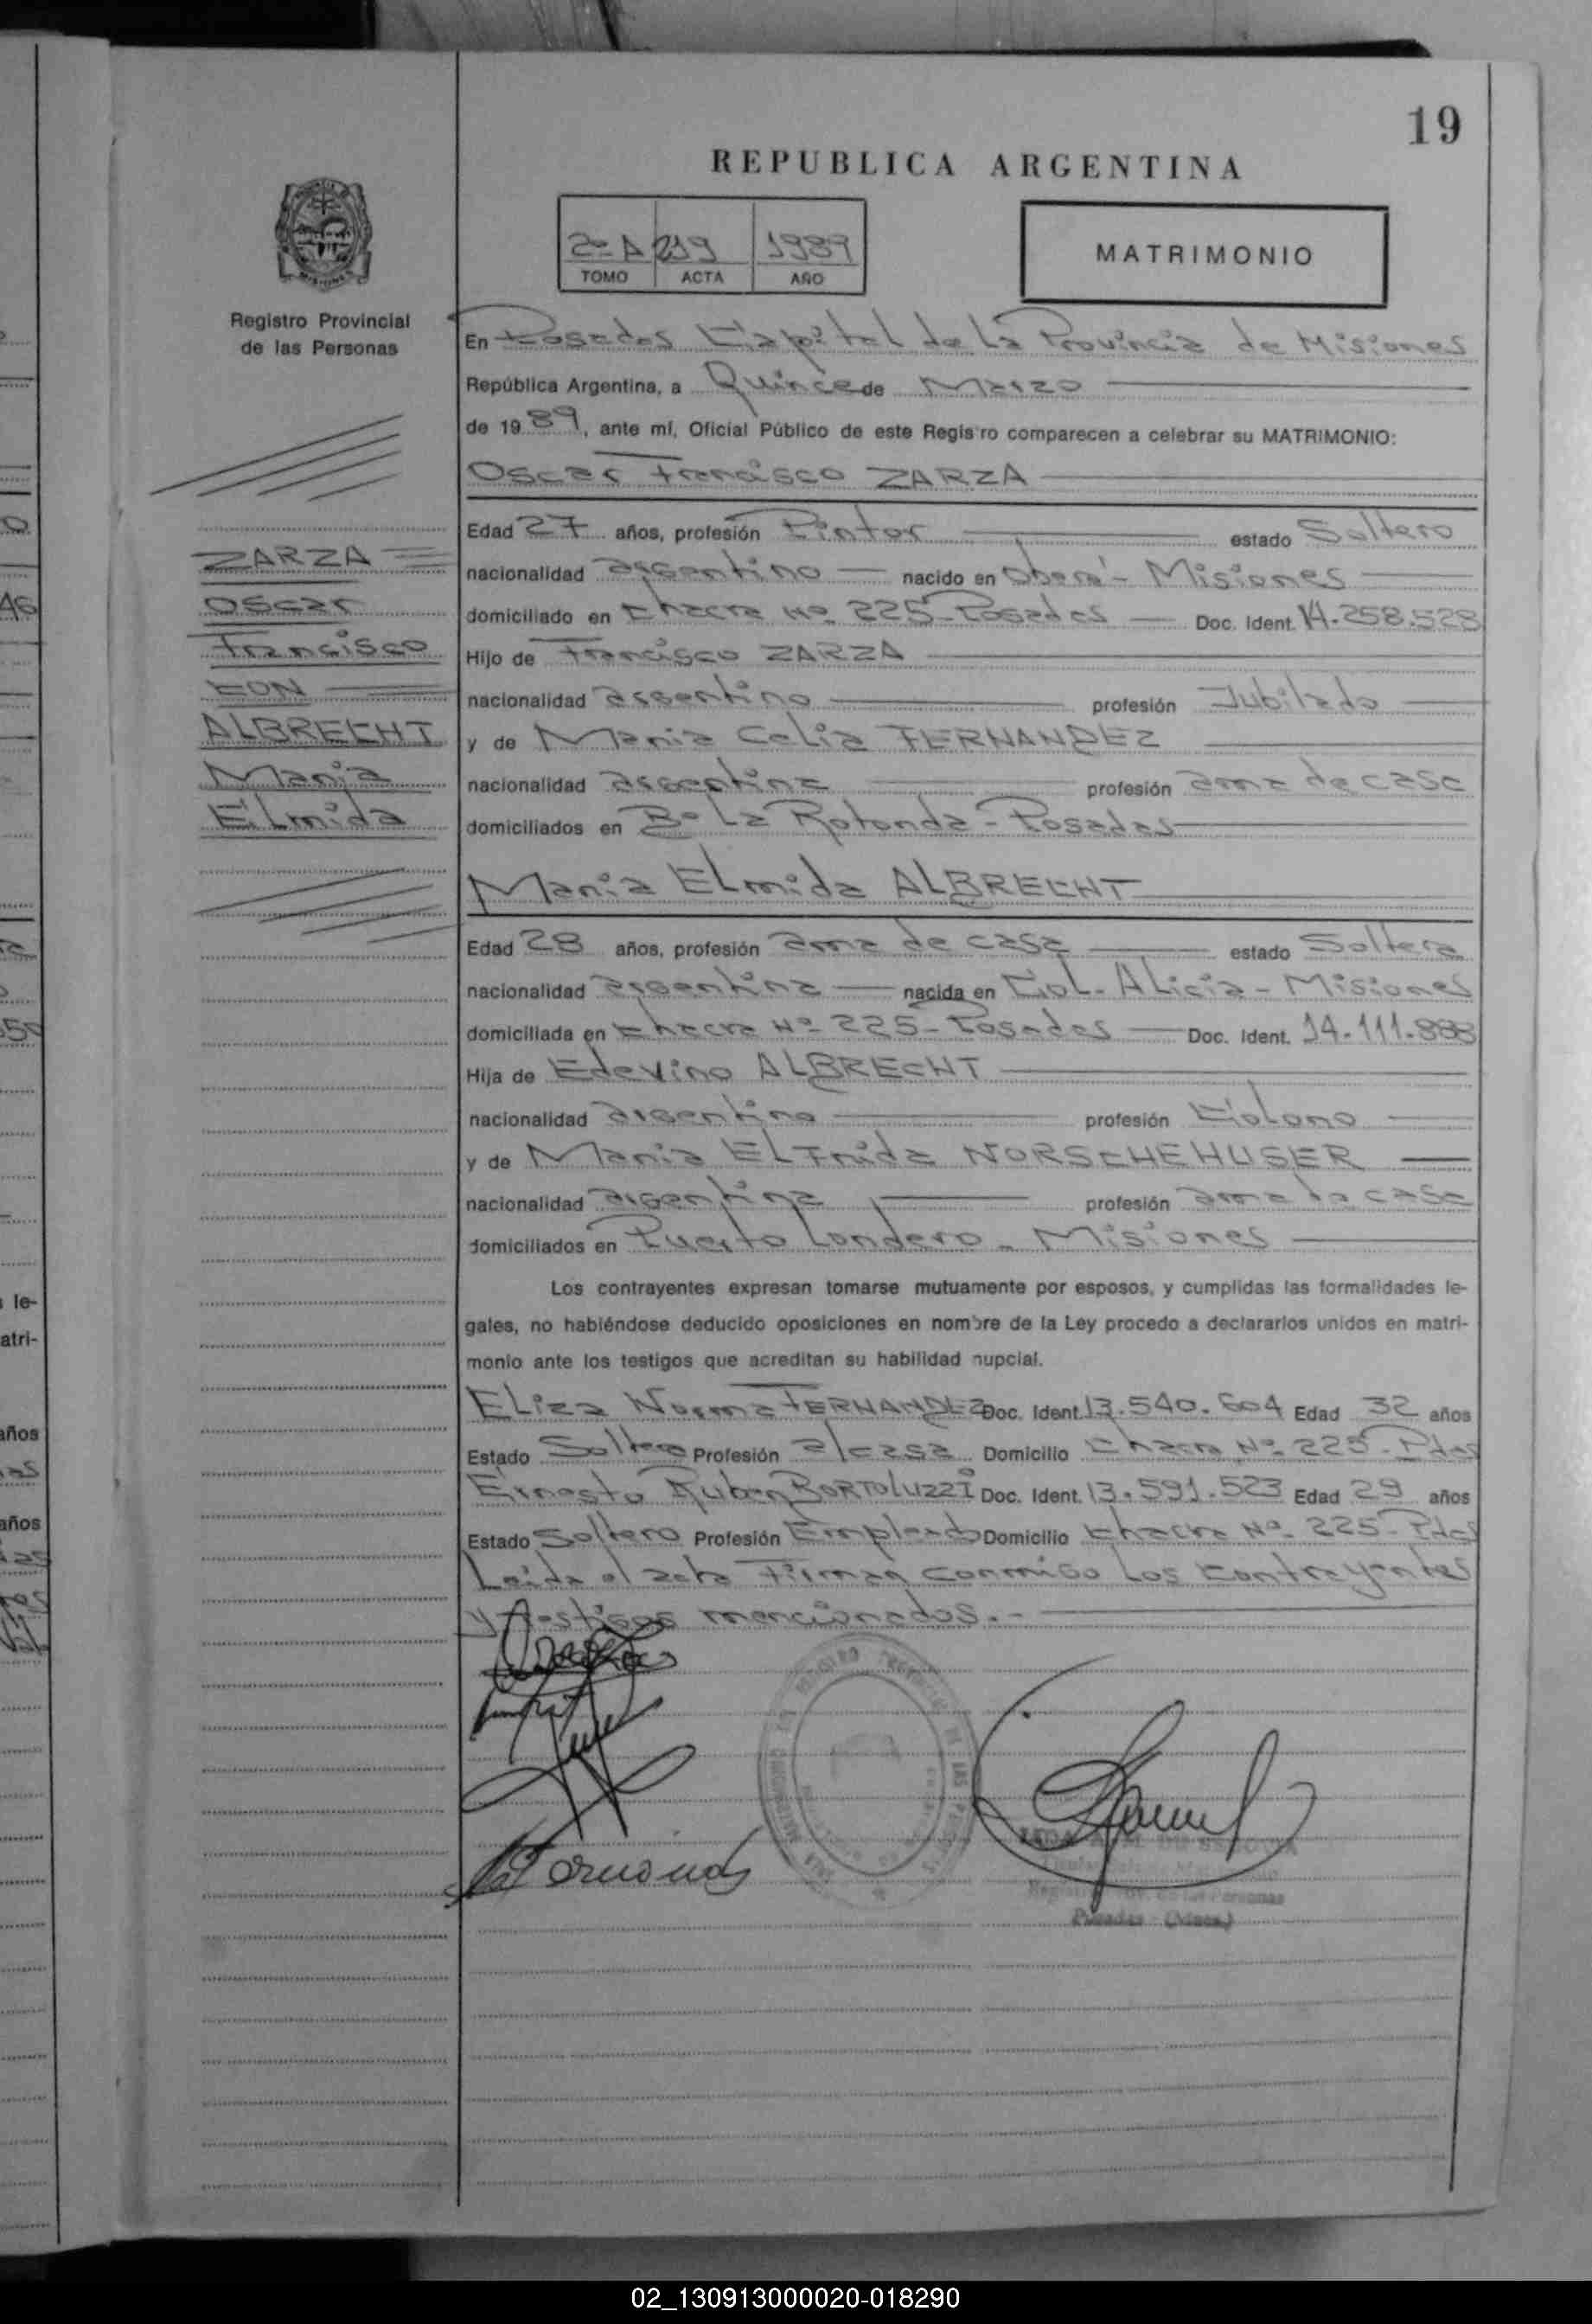 19
REPUBLICA ARGENTINA
2º A 219 1989
TOMO ACTA AÑO
MATRIMONIO
Registro Provincial
de las Personas
ZARZA
Oscar
Francisco
CON
ALBRECHT
Maria
Elmida
En Posadas Capital de La Provincia de Misiones
República Argentina, a Quince de Marzo
de 1989, ante mí, Oficial Público de este Registro comparecen a celebrar su MATRIMONIO:
Oscar Francisco ZARZA
Edad 27 años, profesión Pintor estado Soltero
nacionalidad argentino nacido en Oberá - Misiones
domiciliado en Chacra Nº 225 - Posadas Doc. Ident. 14.258.528
Hijo de Francisco ZARZA
nacionalidad argentino profesión Jubilado
y de Maria Celia FERNANDEZ
nacionalidad argentina profesión ama de casa
domiciliados en Bº La Rotonda - Posadas
Maria Elmida ALBRECHT
Edad 28 años, profesión ama de casa estado Soltera
nacionalidad argentina nacida en Col. Alicia - Misiones
domiciliada en Chacra Nº 225 - Posadas Doc. Ident. 14.111.888
Hija de Edevino ALBRECHT
nacionalidad argentino profesión Colono
y de Maria Elfrida NORSCHEHUSER
nacionalidad argentina profesión ama de casa
domiciliados en Puerto Londero - Misiones
Los contrayentes expresan tomarse mutuamente por esposos, y cumplidas las formalidades le-
gales, no habiéndose deducido oposiciones en nombre de la Ley procedo a declararlos unidos en matri-
monio ante los testigos que acreditan su habilidad nupcial.
Eliza Norma FERNANDEZ Doc. Ident. 13.540.604 Edad 32 años
Estado Soltera Profesión a/casa Domicilio Chacra Nº 225 - Pdas
Ernesto Ruben BORTOLUZZI Doc. Ident. 13.591.523 Edad 29 años
Estado Soltero Profesión Empleado Domicilio Chacra Nº 225 - Pdas
Leida el acta Firman conmigo Los contrayentes
y testigos mencionados.-
Posadas - (Mnes.)
02_130913000020-018290